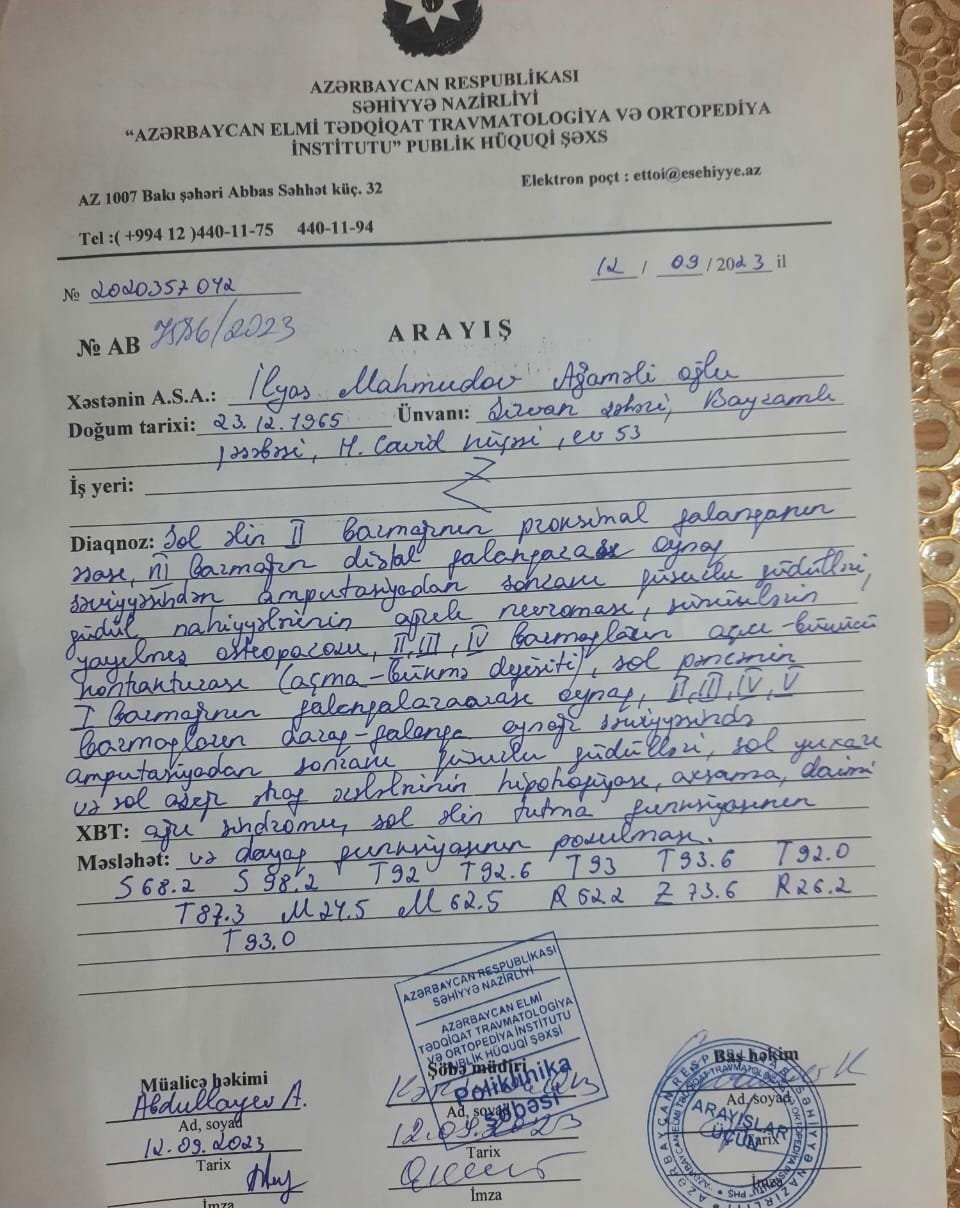 AZƏRBAYCAN RESPUBLİKASI
SƏHİYYƏ NAZİRLİYİ
“AZƏRBAYCAN ELMİ TƏDQİQAT TRAVMATOLOGİYA VƏ ORTOPEDİYA
İNSTİTUTU” PUBLİK HÜQUQİ ŞƏXS
AZ 1007 Bakı şəhəri Abbas Səhhət küç. 32
Elektron poçt : ettoi@esehiyye.az
Tel :( +994 12 )440-11-75 440-11-94
12 / 09 / 2023 il
№ 2020357042
№ AB 7586/2023
ARAYIŞ
Xəstənin A.S.A.: İlyas Mahmudov Ağaməli oğlu
Doğum tarixi: 23.12.1965 Ünvanı: Şirvan şəhəri, Bayramlı
qəsəbəsi, H. Cavid küçəsi, ev 53
İş yeri:
Diaqnoz: Sol əlin II barmağının proksimal falanqanın
əsası, III barmağın distal falanqaarası oynaq
səviyyəsindən amputasiyadan sonrakı qüsurlu güdülləri,
güdül nahiyyələrinin ağrılı nevroması, sümüklərin
yayılmış osteoporozu, II, III, IV barmaqların açıcı-bükücü
kontrakturası (açma-bükmə defisiti), sol pəncənin
I barmağının falanqalararası oynaq, II, III, IV, V
barmaqların daraq-falanqa oynağı səviyyəsində
amputasiyadan sonrakı qüsurlu güdülləri, sol yuxarı
və sol aşağı ətraf əzələlərinin hipotrofiyası, axsama, daimi
XBT: ağrı sindromu, sol əlin tutma funksiyasının
Məsləhət: və dayaq funksiyasının pozulması.
S 68.2 S 98.2 T92 T92.6 T93 T93.6 T92.0
T87.3 M24.5 M62.5 R52.2 Z 73.6 R26.2
T93.0
AZƏRBAYCAN RESPUBLİKASI
SƏHİYYƏ NAZİRLİYİ
AZƏRBAYCAN ELMİ
TƏDQİQAT TRAVMATOLOGİYA
VƏ ORTOPEDİYA İNSTİTUTU
PUBLİK HÜQUQİ ŞƏXSİ
Poliklinika
şöbəsi
Müalicə həkimi
Abdullayev A.
Ad, soyad
12.09.2023
Tarix
İmza
Şöbə müdiri
Ad, soyad
12.09.2023
Tarix
İmza
Baş həkim
Ad, soyad
Tarix
İmza
ARAYIŞLAR
ÜÇÜN